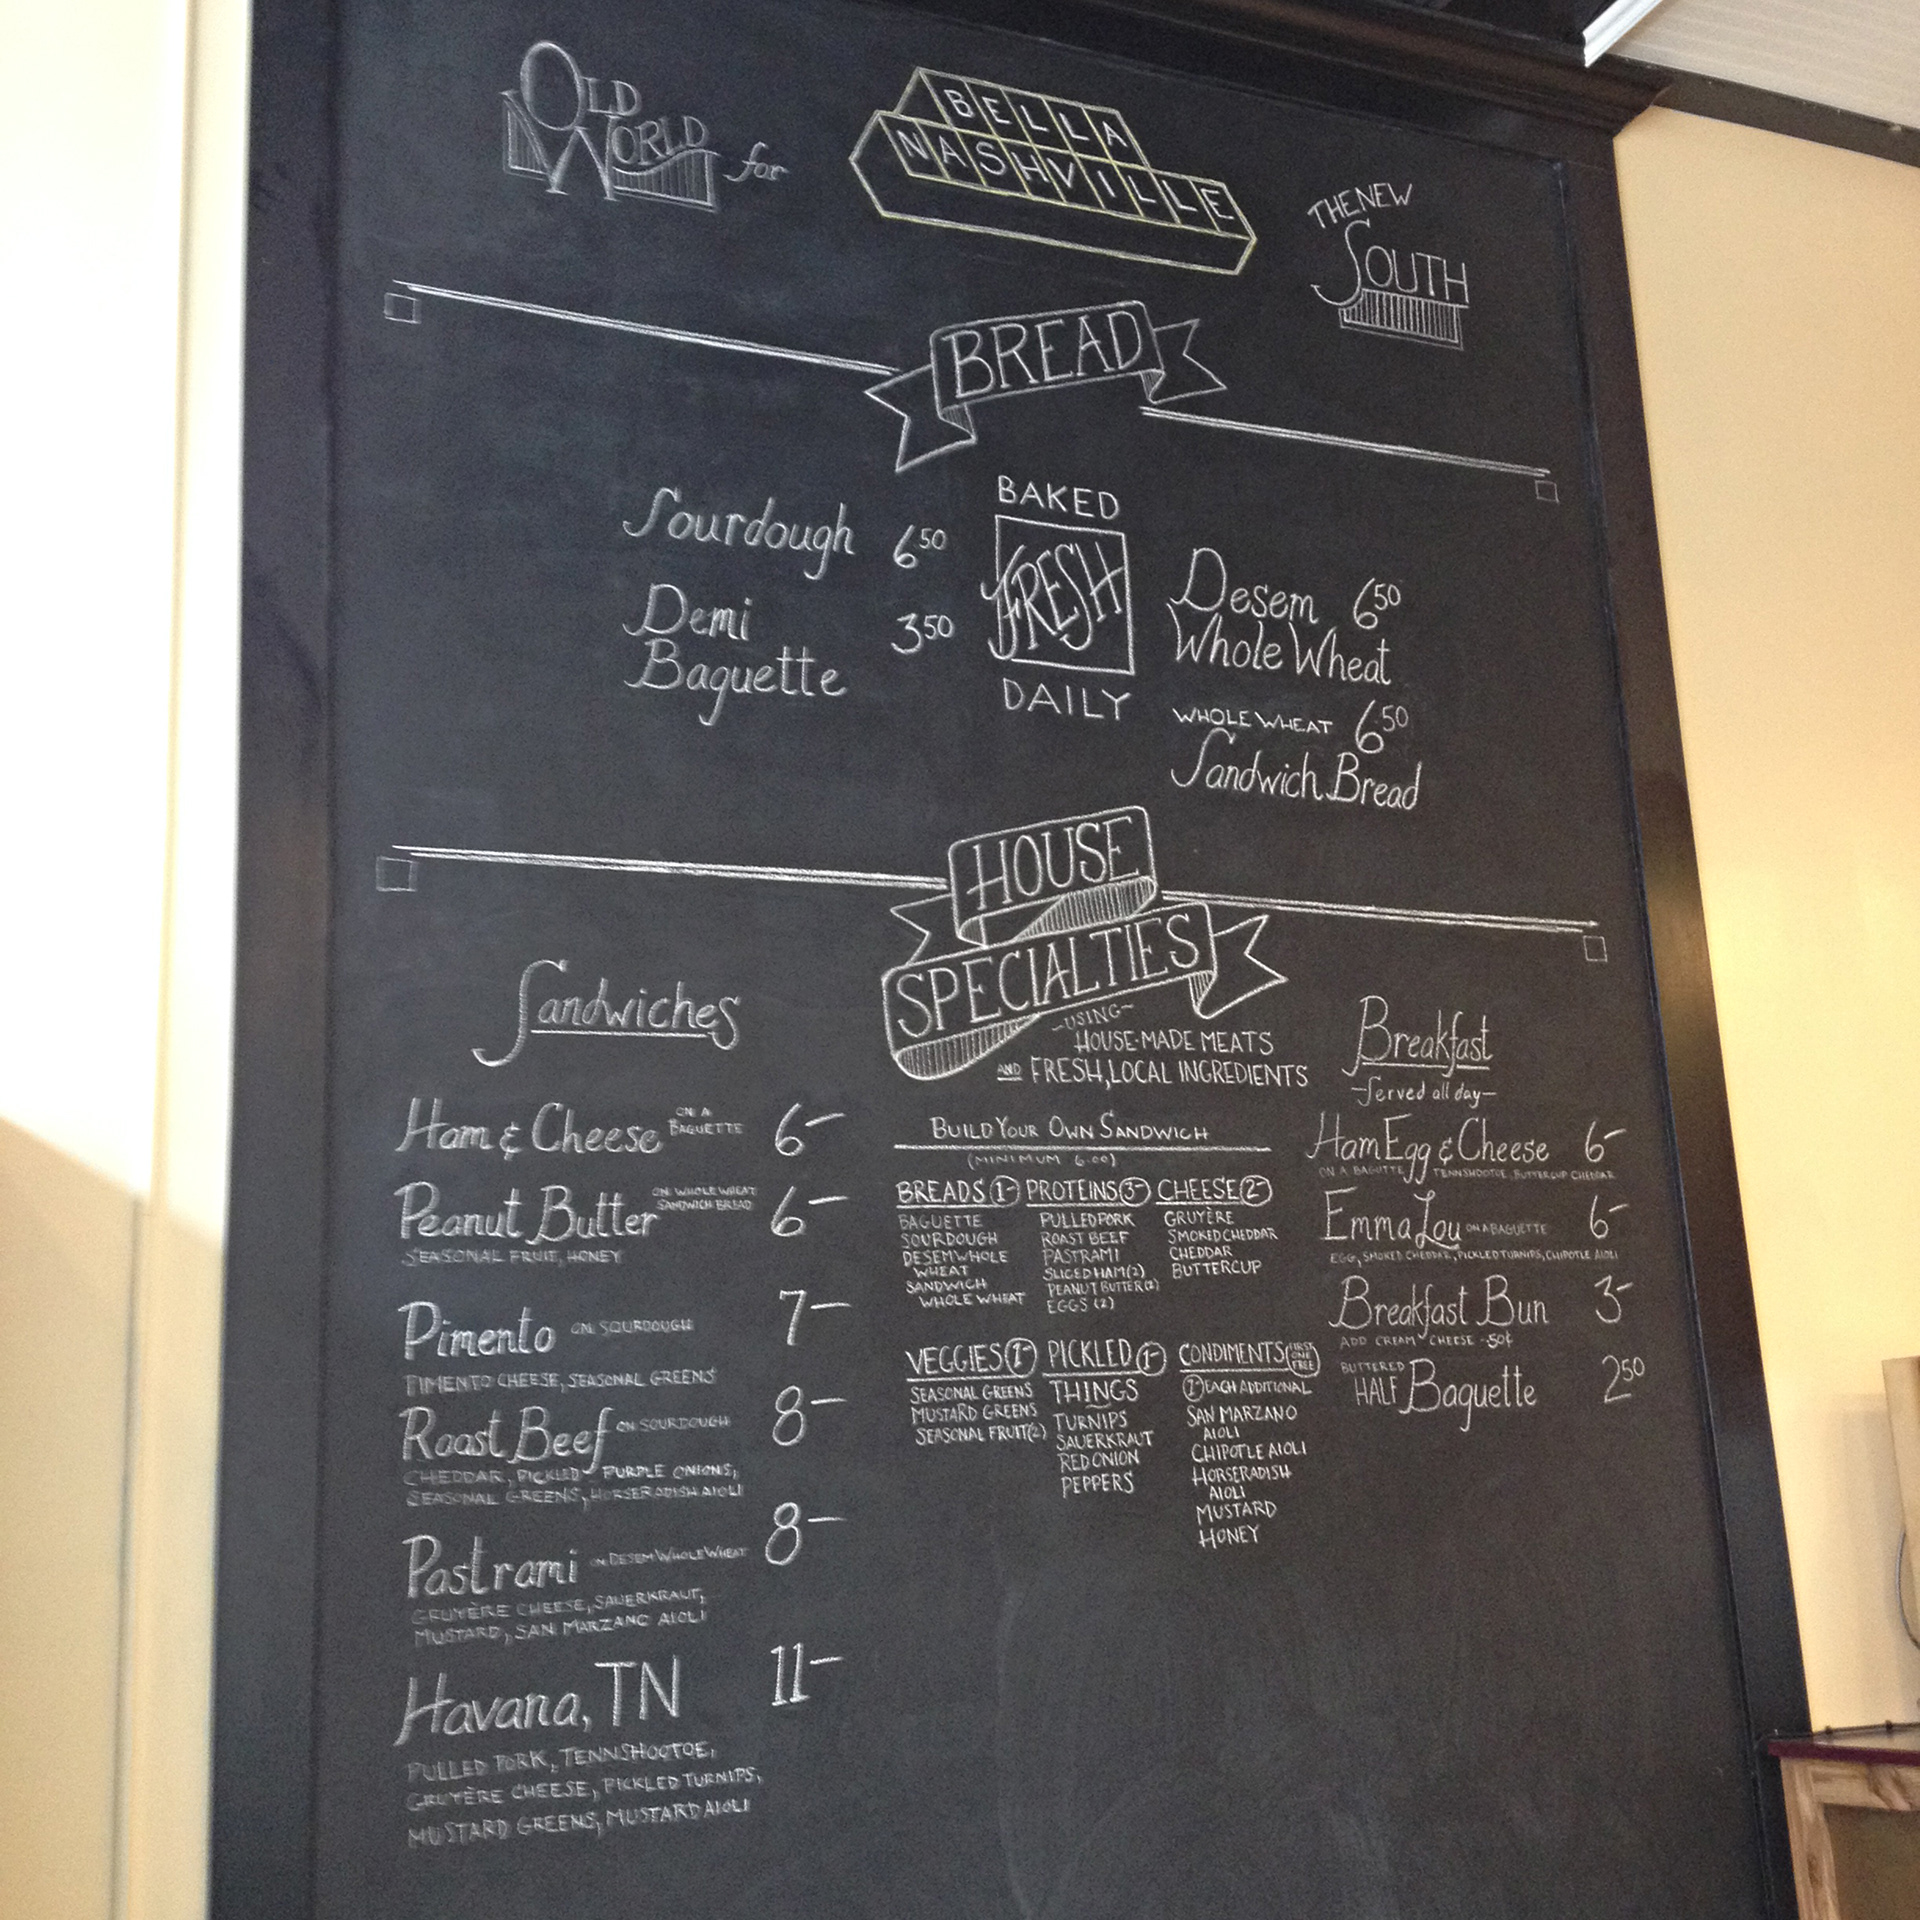 OLD
WORLD for
BELLA
NASHVILLE
THE NEW
SOUTH
BREAD
Sourdough 6 50
Demi 3 50
Baguette
BAKED
FRESH
DAILY
Desem 6 50
Whole Wheat
WHOLE WHEAT 6 50
Sandwich Bread
HOUSE
SPECIALTIES
-USING-
HOUSE-MADE MEATS
AND FRESH, LOCAL INGREDIENTS
Sandwiches
Ham & Cheese ON A BAGUETTE 6-
Peanut Butter ON WHOLE WHEAT SANDWICH BREAD 6-
SEASONAL FRUIT, HONEY
Pimento ON SOURDOUGH 7-
PIMENTO CHEESE, SEASONAL GREENS
Roast Beef ON SOURDOUGH 8-
CHEDDAR, PICKLED PURPLE ONIONS,
SEASONAL GREENS, HORSERADISH AIOLI
Pastrami ON DESEM WHOLE WHEAT 8-
GRUYÈRE CHEESE, SAUERKRAUT,
MUSTARD, SAN MARZANO AIOLI
Havana, TN 11-
PULLED PORK, TENNSHOOTOE,
GRUYÈRE CHEESE, PICKLED TURNIPS,
MUSTARD GREENS, MUSTARD AIOLI
BUILD YOUR OWN SANDWICH
(MINIMUM 6.00)
BREADS 1-
BAGUETTE
SOURDOUGH
DESEM WHOLE
WHEAT
SANDWICH
WHOLE WHEAT
PROTEINS 3-
PULLED PORK
ROAST BEEF
PASTRAMI
SLICED HAM (2)
PEANUT BUTTER (2)
EGGS (2)
CHEESE 2-
GRUYÈRE
SMOKED CHEDDAR
CHEDDAR
BUTTERCUP
VEGGIES 1-
SEASONAL GREENS
MUSTARD GREENS
SEASONAL FRUIT (2)
PICKLED 1-
THINGS
TURNIPS
SAUERKRAUT
RED ONION
PEPPERS
CONDIMENTS (FIRST ONE FREE)
1- EACH ADDITIONAL
SAN MARZANO
AIOLI
CHIPOTLE AIOLI
HORSERADISH
AIOLI
MUSTARD
HONEY
Breakfast
-Served all day-
Ham Egg & Cheese 6-
ON A BAGUTTE, TENNSHOOTOE, BUTTERCUP CHEDDAR
Emma Lou ON A BAGUETTE 6-
EGG, SMOKED CHEDDAR, PICKLED TURNIPS, CHIPOTLE AIOLI
Breakfast Bun 3-
ADD CREAM CHEESE -50¢
BUTTERED
HALF Baguette 2 50